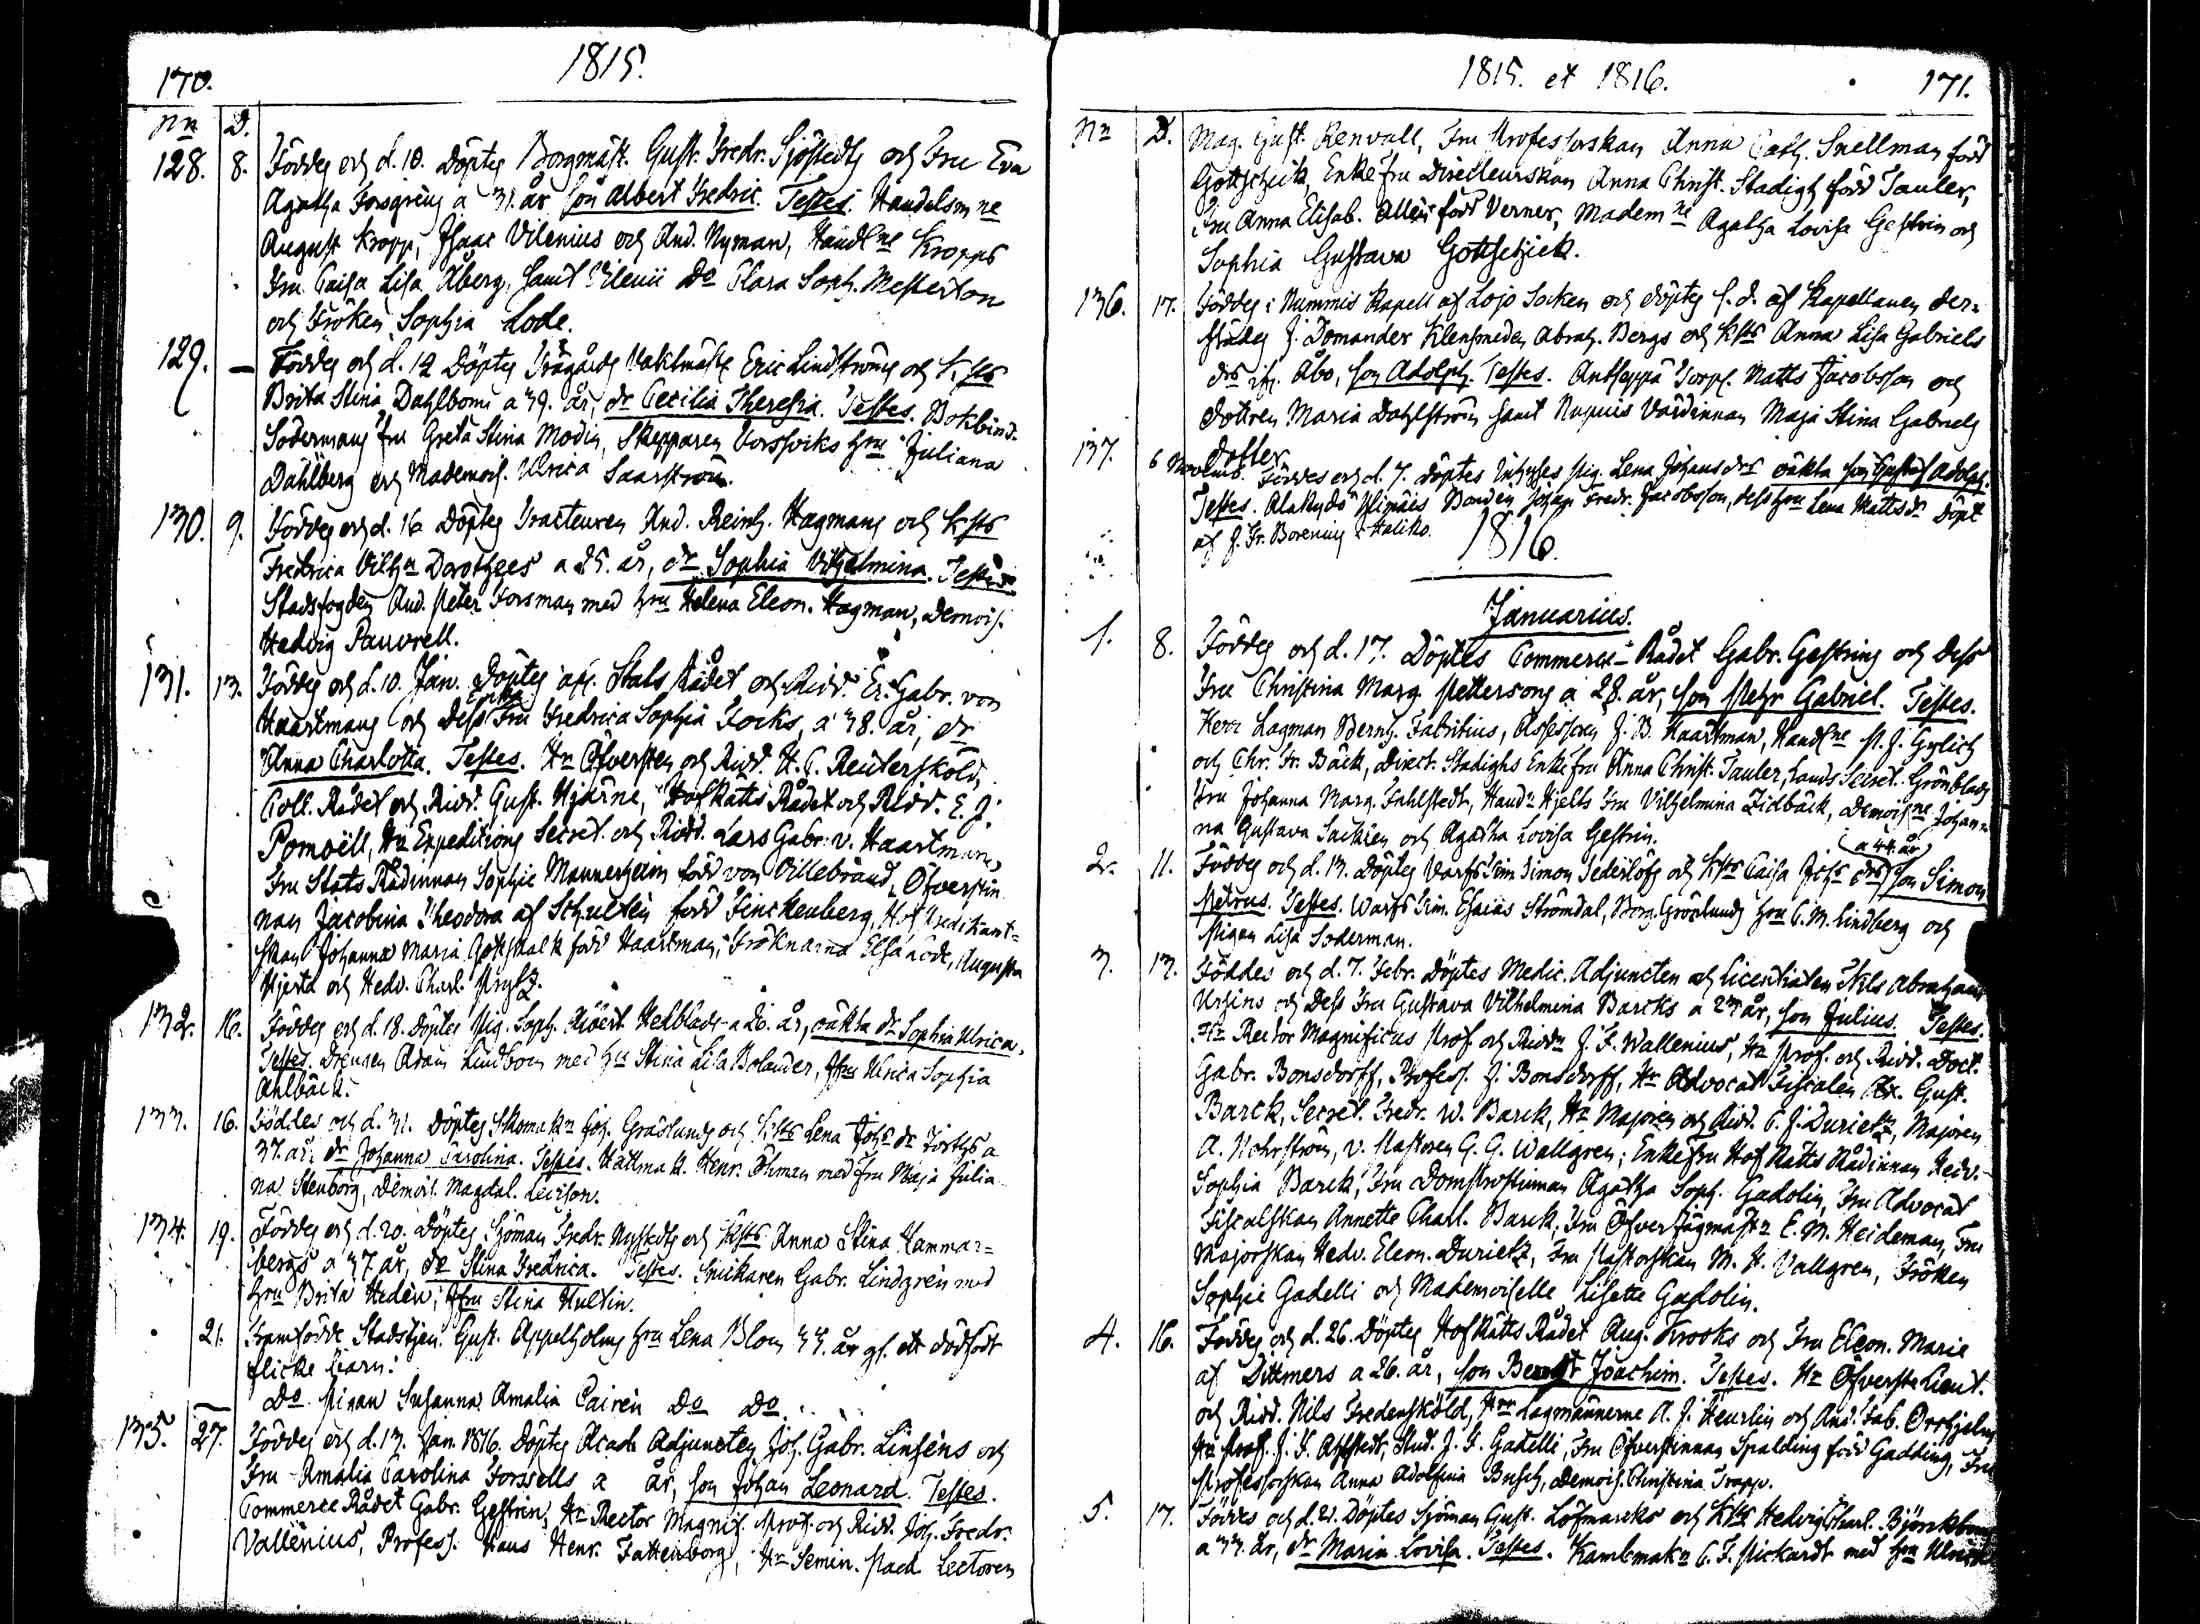 170.
1815.
Nn D.
128. 8. Föddes och d. 10. Döptes Borgmäst. Gust. Fredr. Sjöstedts och Fru Eva
Agatha Forsgrens a 31. år son Albert Fredric. Testes. Handelsm ne
August Kropp, Isaac Vilenius och And. Nyman, Handl ne Kropps
Fru Caisa Lisa Åberg, samt Vilenii Do Clara Soph. Mesterton
och Fröken Sophia Lode.
129. — Föddes och d. 12 Döptes Trägårds Vaktmäst. Eric Lindströms och hs
Brita Stina Dahlboms a 39. år, dr Cecilia Theresia. Testes. Bokbind.
Södermans fru Greta Stina Modin, Skepparen hru Juliana
Dahlberg och Mademois. Ulrica Saarström.
130. 9. Föddes och d. 16 Döptes Tracteuren And. Reinh. Hagmans och hs
Fredrica Vilhna Dorothees a 25. år, dr Sophia Vilhelmina. Testes
Stadsfogden And. Peter Forsman med hru Helena Eleon. Hagman, Demois.
Hedvig Pauvrell.
131. 13. Föddes och d. 10. Jan. Döptes afl. Stats Rådet och Ridd. Er. Gabr. von
Haartmans och Dess Enke Fru Fredrica Sophia Focks, a 38. år, dr
Anna Charlotta. Testes. Hr Öfversten och Ridd. H. C. Reuterskold,
Coll. Rådet och Ridd. Gust. Hjärne, HofRätts Rådet och Ridd. E. J.
Pomoëll, Hr Expeditions Secret. och Ridd. Lars Gabr. v. Haartman,
Fru Stats Rådinnan Sophie Mannerheim född von Villebrand, Öfverstin
nan Jacobina Theodora af Schultén född Finckenberg, Hof Predikant-
skan Johanna Maria Gottskalk född Haartman, Fröknarna Elsa Lode, Augusta
Hjerta och Hedv. Charl. Prytz.
132. 16. Föddes och d. 18. Döptes Pig. Soph. Hedblads a 20. år, oäkta dr Sophia Ulrica.
Testes. Drengen Adam Lindbom med hru Stina Lisa Bolander, Jfru Ulrica Sophia
Ahlbäck.
133. 16. Föddes och d. 31. Döptes Skomakn Joh. Gräslunds och hs Lena Johs dr a
37. år, dr Johanna Carolina. Testes. Hattmak. Henr. Öhman med Fru Maja Julia
na Stenborg, Demois. Magdal. Levison.
134. 19. Föddes och d. 20. Döptes Sjöman Fredr. Nystedts och hs Anna Stina Hammar-
bergs a 37 år, dr Stina Fredrica. Testes. Snickaren Gabr. Lindgren med
hru Brita Heden, Jfru Stina Hultin.
21. Framfödde Stadstjen. Gust. Appelholms hru Lena Blom 33. år gl. ett dödfödt
flicke barn.
Do Pigan Susanna Amalia Cairén Do Do.
135. 27. Föddes och d. 13. Jan. 1816. Döptes Acad. Adjuncten Joh. Gabr. Linséns och
Fru Amalia Carolina Forsells a år, son Johan Leonard. Testes.
Commerce Rådet Gabr. Gestrin, Hr Rector Magnif. Prof. och Ridd. Joh. Fredr.
Vallenius, Profess. Hans Henr. Fattenborg, Hr Semin. Paed. Lectoren
1815. et 1816.
171.
Nn D. Mag. Gust. Renvall, Fru Professorskan Anna Cath. Snellman född
Gottschick, Enkefru Directeurskan Anna Christ. Stadigh född Tauler,
Fru Anna Elisab. Allén född Verner, Madem ne Agatha Lovisa Gestrin och
Sophia Gustava Gottschick.
136. 17. Föddes i Nummis Kapell af Lojo Socken och döptes s. d. af Kapellanen der-
städes J. Domander Klensmeden Abrah. Bergs och hs Anna Lisa Gabriels
drs ifr. Åbo, son Adolph. Testes. Torp. Matts Jacobsson och
dottren Maria Dahlström samt Nopuis Värdinnan Maja Stina Gabriels
dotter
137. 6 Novemb. Föddes och d. 7. döptes Pig. Lena Johans drs oäkta son Gustaf Adolph.
Testes. Bonden Johan Fredr. Jacobsson, dess hru Lena Matts dr Döpt
af J. Fr. Borenius i Haliko.
1816.
Januarius.
1. 8. Föddes och d. 17. Döptes Commerce-Rådet Gabr. Gestrins och Dess
Fru Christina Marg. Pettersons a 28. år, son Pehr Gabriel. Testes.
Herr Lagman Bernh. Fabritius, Assessoren J. B. Haartman, Handl ne P. J. Gylich
och Chr. Fr. Bäck, Direct. Stadighs Enkefru Anna Christ. Tauler, Lands Secret. Grönblads
Fru Johanna Marg. Fahlstedt, Handn Hjelts Fru Vilhelmina Zidbäck, Demois ne Johan-
na Gustava Sacklén och Agatha Lovisa Gestrin.
2. 11. Föddes och d. 13. Döptes VarfsTim. Simon Cederlöfs och hs Caisa Johs drs (a 44. år) son Simon
Petrus. Testes. Warfs Tim. Esaias Strömdal, Borg. Gröxlunds hru C. M. Lindberg och
Pigan Lisa Söderman.
3. 13. Föddes och d. 7. Febr. döptes Medic. Adjuncten och Licentiaten Nils Abraham
Ursins och Dess Fru Gustava Vilhelmina Barcks a 23 år, son Julius. Testes.
Hr Rector Magnificus Prof. och Riddn J. F. Wallenius, Hr Prof. och Ridd. Doct.
Gabr. Bonsdorff, Profess. J. Bonsdorff, Hr Advocat Fiscalen Ax. Gust.
Barck, Secret. Fredr. W. Barck, Hr Majoren och Ridd. C. J. Durietz, Majoren
A. Nohrström, v. Pastoren G. G. Wallgren; Enkefru Hof Rätts Rådinnan Hedv.
Sophia Barck, Fru Domprostinnan Agatha Soph. Gadolin, Fru Advocat
Fiscalskan Annette Charl. Barck, Fru Öfverjägmästn E. M. Heideman, Fru
Majorskan Hedv. Eleon. Durietz, Fru Pastorskan M. H. Vallgren, Fröken
Sophie Gadelli och Mademoiselle Lisette Gadolin.
4. 16. Föddes och d. 26. Döptes Hof Rätts Rådet Aug. Krooks och Fru Eleon. Marie
af Dittmers a 26. år, son Bernt Joachim. Testes. Hr Öfverste Lieut.
och Ridd. Nils Fredensköld, Hrr Lagmännerne A. J. Heurlin och And. Fab. Orrhjelm,
Hr Prof. J. F. Ahlstedt, Stud. J. F. Gadelli, Fru Öfverstinnan Spalding född Gadding, Fru
Professorskan Anna Adolfina Busch, Demois. Christina Trapp.
5. 17. Föddes och d. 21. Döptes Sjöman Gust. Löfmarcks och hs Hedvig Charl. Björkbom
a 33. år, dr Maria Lovisa. Testes. Kambmakn C. F. Pickardt med hru Ulrica